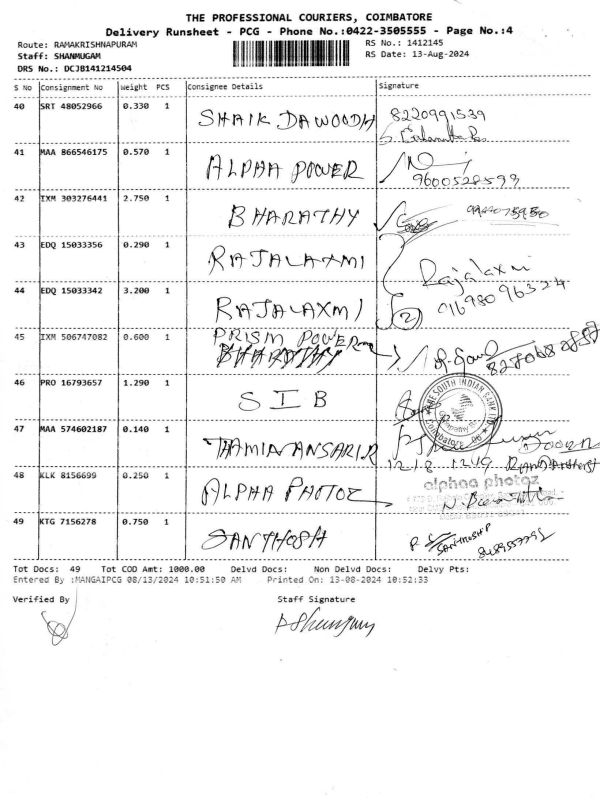 THE PROFESSIONAL COURIERS, COIMBATORE
Delivery Runsheet - PCG - Phone No.:0422-3505555 - Page No.:4
Route: RAMAKRISHNAPURAM RS No.: 1412145
Staff: SHANMUGAM RS Date: 13-Aug-2024
DRS No.: DCJB141214504
S No Consignment No Weight PCS Consignee Details Signature
40 SRT 48052966 0.330 1 SHAIK DAWOODH 8220991539
41 MAA 866546175 0.570 1 ALPHA POWER 9600528599
42 IXM 303276441 2.750 1 BHARATHY
43 EDQ 15033356 0.290 1 RAJALAXMI Rajalaxmi
44 EDQ 15033342 3.200 1 RAJALAXMI (2)
45 IXM 506747082 0.600 1 PRISM POWER
46 PRO 16793657 1.290 1 SIB THE SOUTH INDIAN BANK LTD
47 MAA 574602187 0.140 1 THAMINANSARI.R
12/8 1249
48 KLK 8156699 0.250 1 ALPHA PHOTOZ alphaa photoz
49 KTG 7156278 0.750 1 SANTHOSH SANTHOSH P
Tot Docs: 49 Tot COD Amt: 1000.00 Delvd Docs: Non Delvd Docs: Delvy Pts:
Entered By :MANGAIPCG 08/13/2024 10:51:50 AM Printed On: 13-08-2024 10:52:33
Verified By Staff Signature